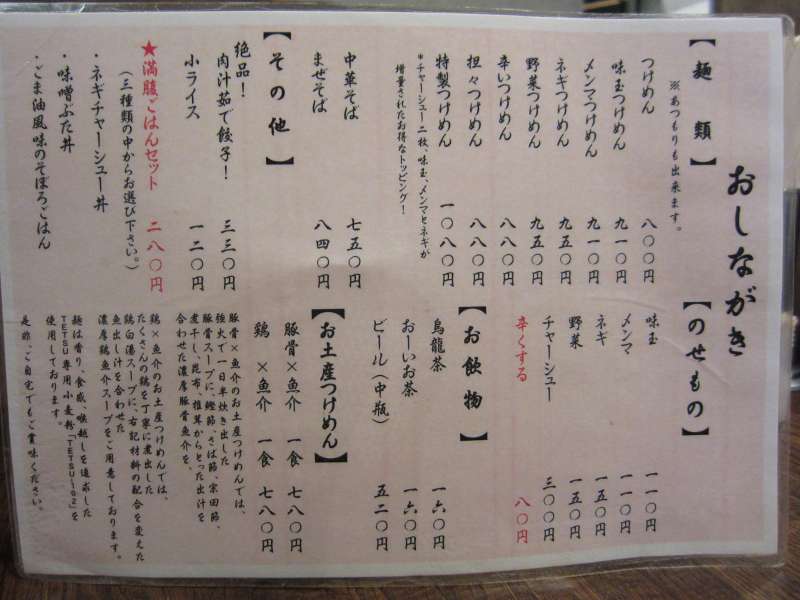 おしながき
【麺類】
※あつもりも出来ます。
つけめん 八〇〇円
味玉つけめん 九一〇円
メンマつけめん 九一〇円
ネギつけめん 九五〇円
野菜つけめん 九五〇円
辛いつけめん 八八〇円
担々つけめん 八八〇円
特製つけめん 一〇八〇円
*チャーシュー二枚、味玉、メンマとネギが
増量されたお得なトッピング！
中華そば 七五〇円
まぜそば 八四〇円
【その他】
絶品！
肉汁茹で餃子！ 三三〇円
小ライス 一二〇円
★満腹ごはんセット 二八〇円
(三種類の中からお選び下さい。)
・ネギチャーシュー丼
・味噌ぶた丼
・ごま油風味のそぼろごはん
【のせもの】
味玉 一一〇円
メンマ 一一〇円
ネギ 一五〇円
野菜 一五〇円
チャーシュー 三〇〇円
辛くする 八〇円
【お飲物】
烏龍茶 一六〇円
おーいお茶 一六〇円
ビール(中瓶) 五二〇円
【お土産つけめん】
豚骨×魚介 一食 七八〇円
鶏×魚介 一食 七八〇円
豚骨×魚介のお土産つけめんでは、
強火で一日半炊き出した
豚骨スープに、鰹節、さば節、宗田節、
煮干し、昆布、椎茸からとった出汁を
合わせた濃厚豚骨魚介を、
鶏×魚介のお土産つけめんでは、
たくさんの鶏を丁寧に煮出した
鶏白湯スープに、右記材料の配合を変えた
魚出し汁を合わせた
濃厚鶏魚介スープをご用意しております。
麺は香り、食感、喉越しを追求した
TETSU専用小麦粉「TETSU-102」を
使用しております。
是非、ご自宅でもご賞味ください。